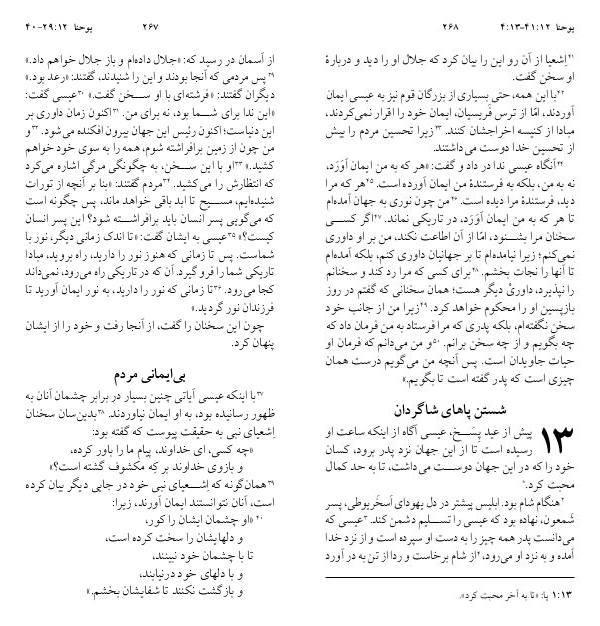 یوحنا ۲۹:۱۲-۴۰
۲۶۷
از آسمان در رسید که: «جلال داده‌ام و باز جلال خواهم داد.»
۲۹پس مردمی که آنجا بودند و این را شنیدند، گفتند: «رعد بود.»
دیگران گفتند: «فرشته‌ای با او سخن گفت.» ۳۰عیسی گفت:
«این ندا برای شما بود، نه برای من. ۳۱اکنون زمان داوری بر
این دنیاست؛ اکنون رئیس این جهان بیرون افکنده می‌شود. ۳۲و
من چون از زمین برافراشته شوم، همه را به سوی خود خواهم
کشید.» ۳۳او با این سخن، به چگونگی مرگی اشاره می‌کرد
که انتظارش را می‌کشید. ۳۴مردم گفتند: «بنا بر آنچه از تورات
شنیده‌ایم، مسیح تا ابد باقی خواهد ماند، پس چگونه است
که می‌گویی پسر انسان باید برافراشته شود؟ این پسر انسان
کیست؟» ۳۵عیسی به ایشان گفت: «تا اندک زمانی دیگر، نور با
شماست. پس تا زمانی که هنوز نور را دارید، راه بروید، مبادا
تاریکی شما را فرو گیرد. آن که در تاریکی راه می‌رود، نمی‌داند
کجا می‌رود. ۳۶تا زمانی که نور را دارید، به نور ایمان آورید تا
فرزندان نور گردید.»
چون این سخنان را گفت، از آنجا رفت و خود را از ایشان
پنهان کرد.
بی‌ایمانی مردم
۳۷با اینکه عیسی آیاتی چنین بسیار در برابر چشمان آنان به
ظهور رسانیده بود، به او ایمان نیاوردند. ۳۸بدین‌سان سخنان
اِشعیای نبی به حقیقت پیوست که گفته بود:
«چه کسی، ای خداوند، پیام ما را باور کرده،
و بازوی خداوند بر که مکشوف گشته است؟»
۳۹همان‌گونه که اِشعیای نبی خود در جایی دیگر بیان کرده
است، آنان نتوانستند ایمان آورند، زیرا:
۴۰«او چشمان ایشان را کور،
و دلهایشان را سخت کرده است،
تا با چشمان خود نبینند،
و با دلهای خود درنیابند،
و بازگشت نکنند تا شفایشان بخشم.»
یوحنا ۴۱:۱۲-۴:۱۳
۲۶۸
۴۱اِشعیا از آن رو این را بیان کرد که جلال او را دید و دربارۀ
او سخن گفت.
۴۲با این همه، حتی بسیاری از بزرگان قوم نیز به عیسی ایمان
آوردند، امّا از ترس فَریسیان، ایمان خود را اقرار نمی‌کردند،
مبادا از کنیسه اخراجشان کنند. ۴۳زیرا تحسین مردم را بیش
از تحسین خدا دوست می‌داشتند.
۴۴آنگاه عیسی ندا در داد و گفت: «هر که به من ایمان آوَرَد،
نه به من، بلکه به فرستندۀ من ایمان آورده است. ۴۵هر که مرا
دید، فرستندۀ مرا دیده است. ۴۶من چون نوری به جهان آمده‌ام
تا هر که به من ایمان آوَرَد، در تاریکی نماند. ۴۷اگر کسی
سخنان مرا بشنود، امّا از آن اطاعت نکند، من بر او داوری
نمی‌کنم؛ زیرا نیامده‌ام تا بر جهانیان داوری کنم، بلکه آمده‌ام
تا آنها را نجات بخشم. ۴۸برای کسی که مرا رد کند و سخنانم
را نپذیرد، داوریْ دیگر هست؛ همان سخنانی که گفتم در روز
بازپسین او را محکوم خواهد کرد. ۴۹زیرا من از جانب خود
سخن نگفته‌ام، بلکه پدری که مرا فرستاد به من فرمان داد که
چه بگویم و از چه سخن برانم. ۵۰و من می‌دانم که فرمان او
حیات جاویدان است. پس آنچه من می‌گویم درست همان
چیزی است که پدر گفته است تا بگویم.»
شستن پاهای شاگردان
۱۳ پیش از عید پِسَخ، عیسی آگاه از اینکه ساعت او
رسیده است تا از این جهان نزد پدر برود، کسان
خود را که در این جهان دوست می‌داشت، تا به حد کمال
محبت کرد.*
۲هنگام شام بود. ابلیس پیشتر در دل یهودای اَسخَریوطی، پسر
شَمعون، نهاده بود که عیسی را تسلیم دشمن کند. ۳عیسی که
می‌دانست پدر همه چیز را به دست او سپرده است و از نزد خدا
آمده و به نزد او می‌رود، ۴از شام برخاست و ردا از تن به در آورد
۱:۱۳ یا: «تا به آخر محبت کرد».